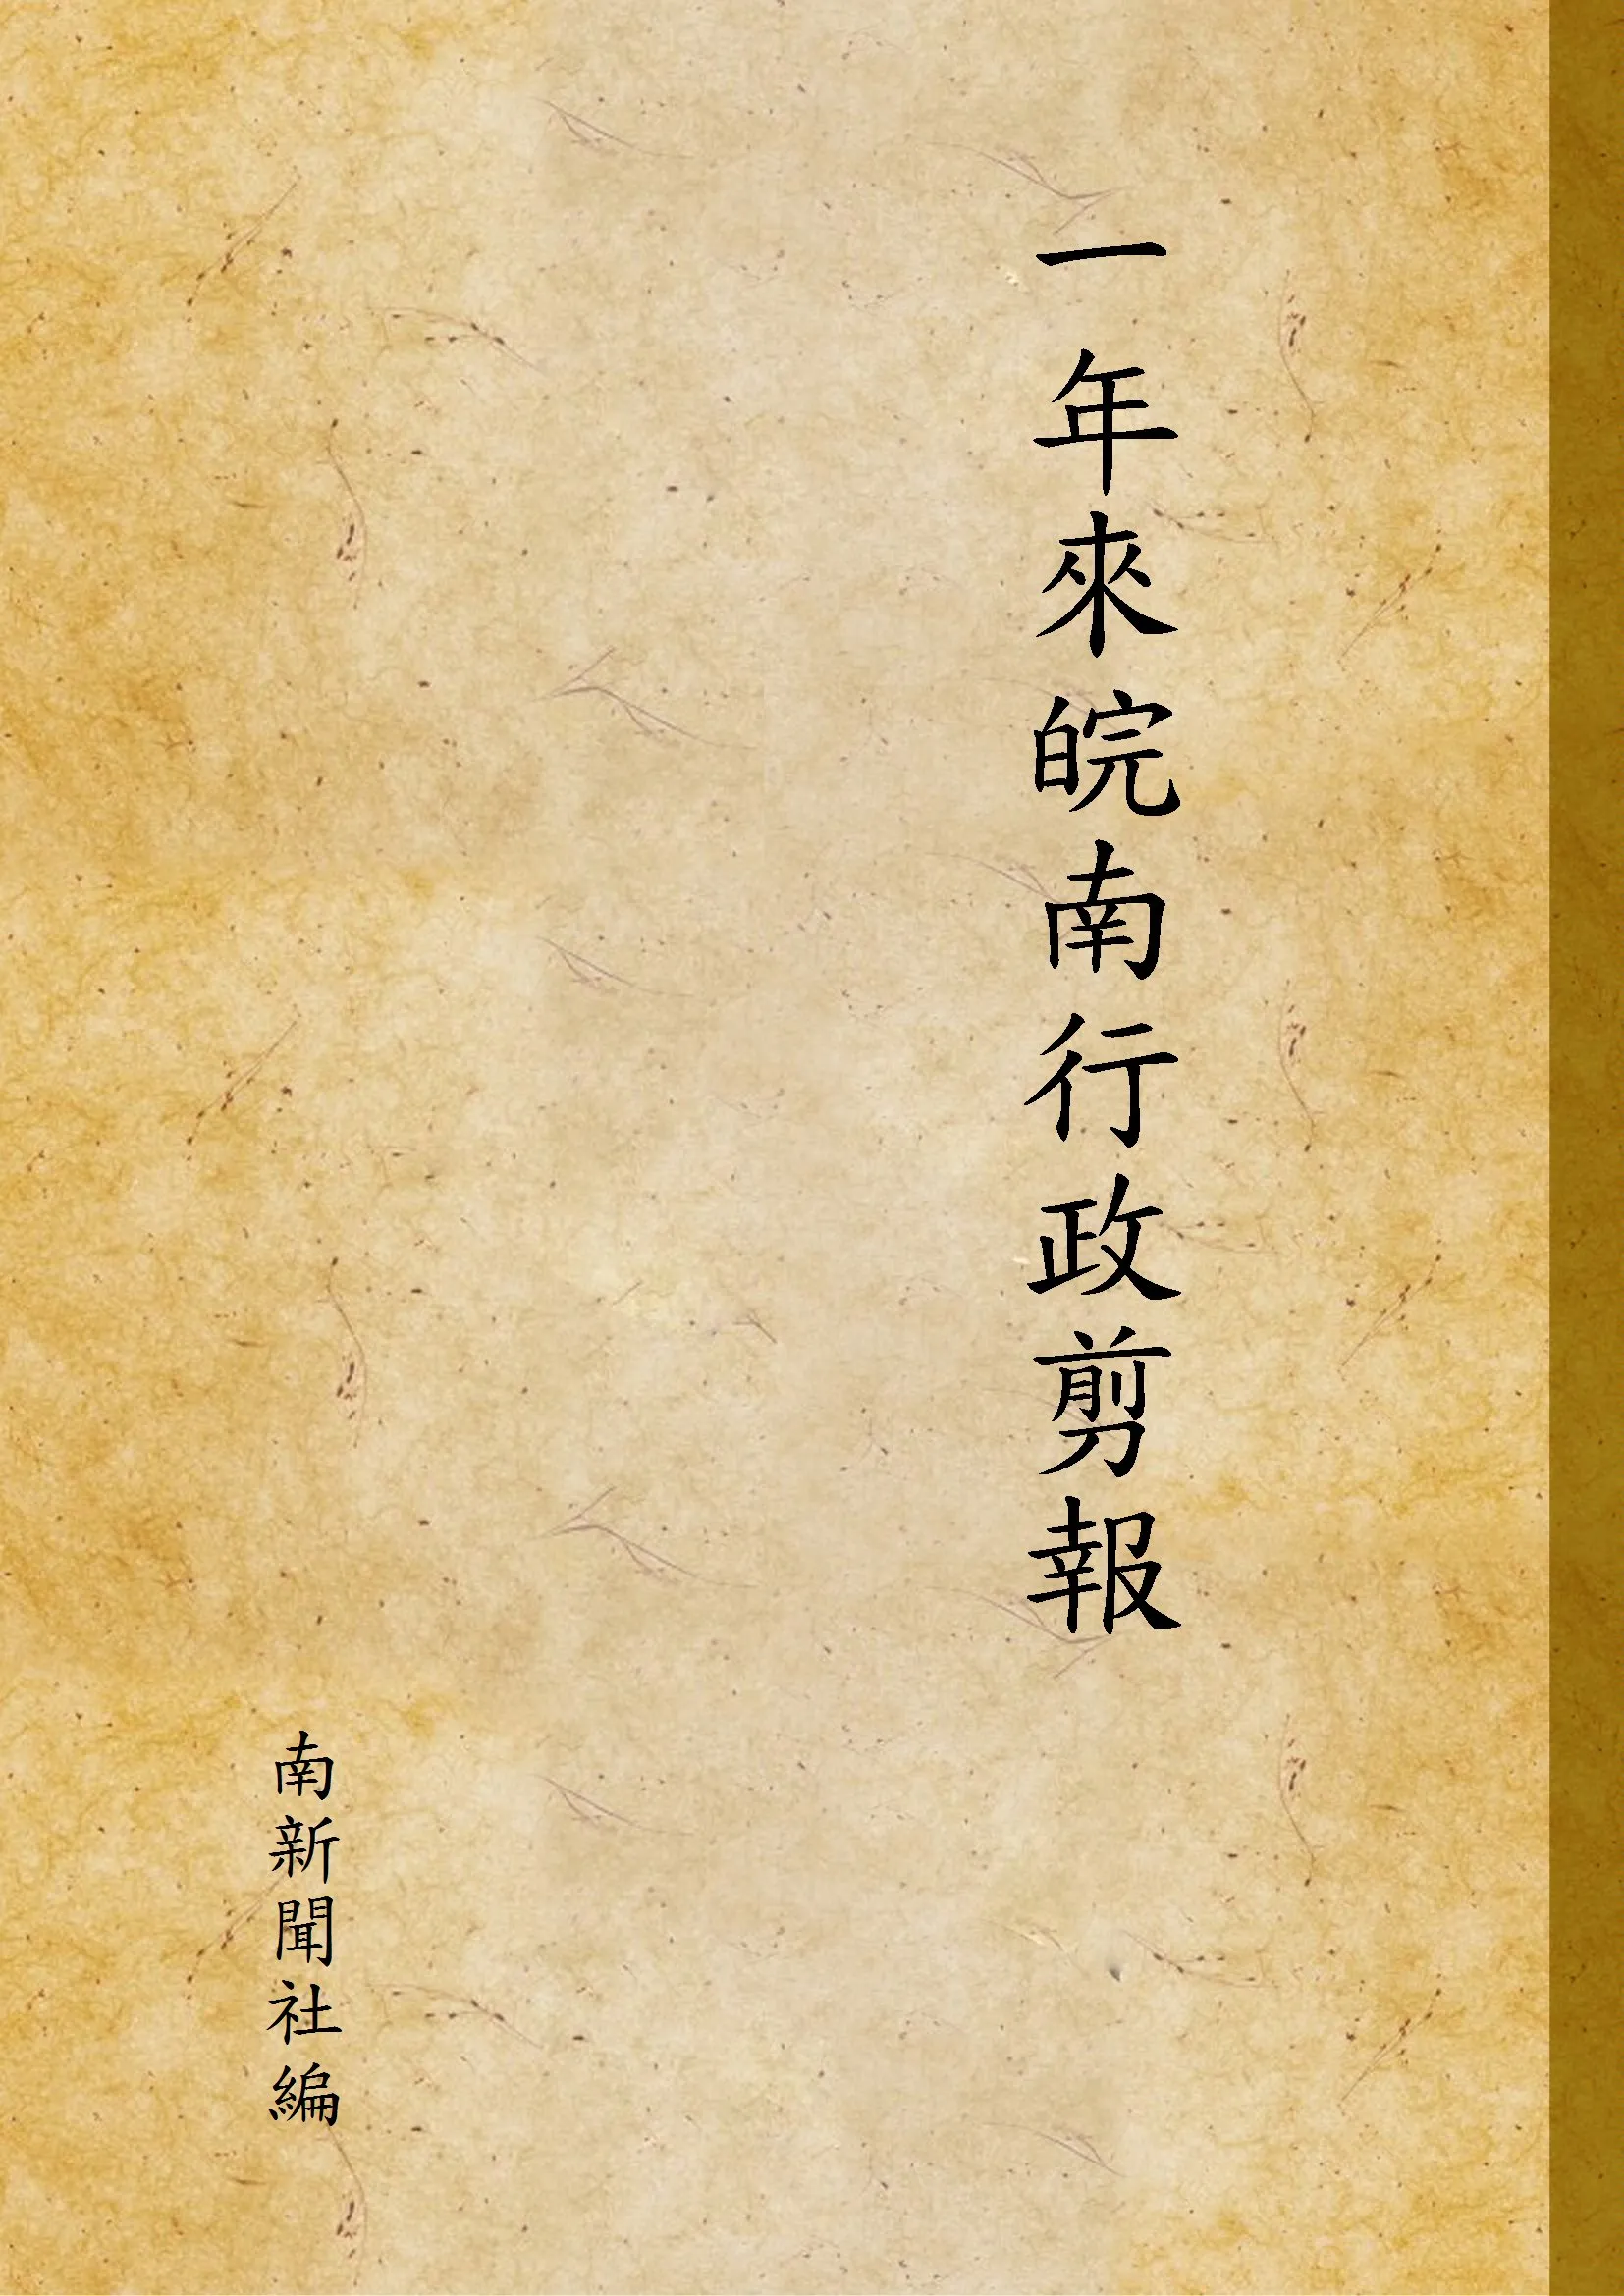 一年來皖南行政剪報
南新聞社編